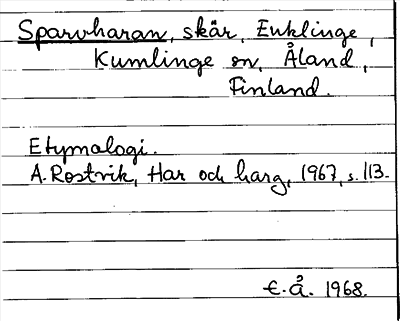 Sparvharan, skär, Enklinge,
Kumlinge sn, Åland,
Finland.
Etymologi.
A. Rostvik, Har och harg, 1967, s. 113.
E.Å. 1968.